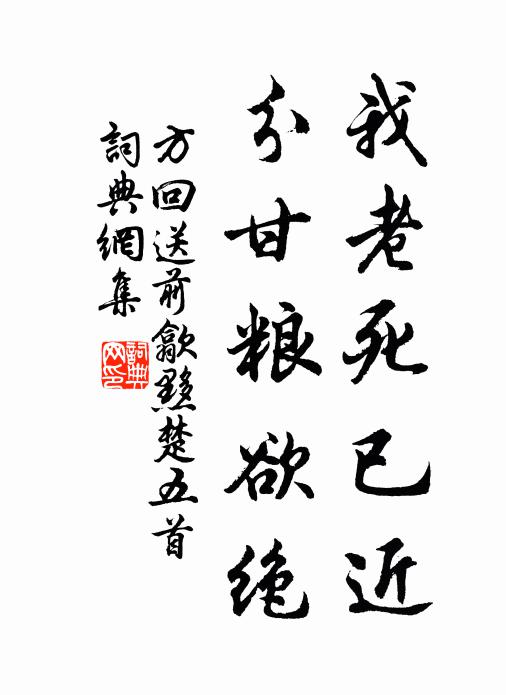 我老死已近
分甘粮欲绝
方回送前歙黟楚五首
詞典網集
詞典網印